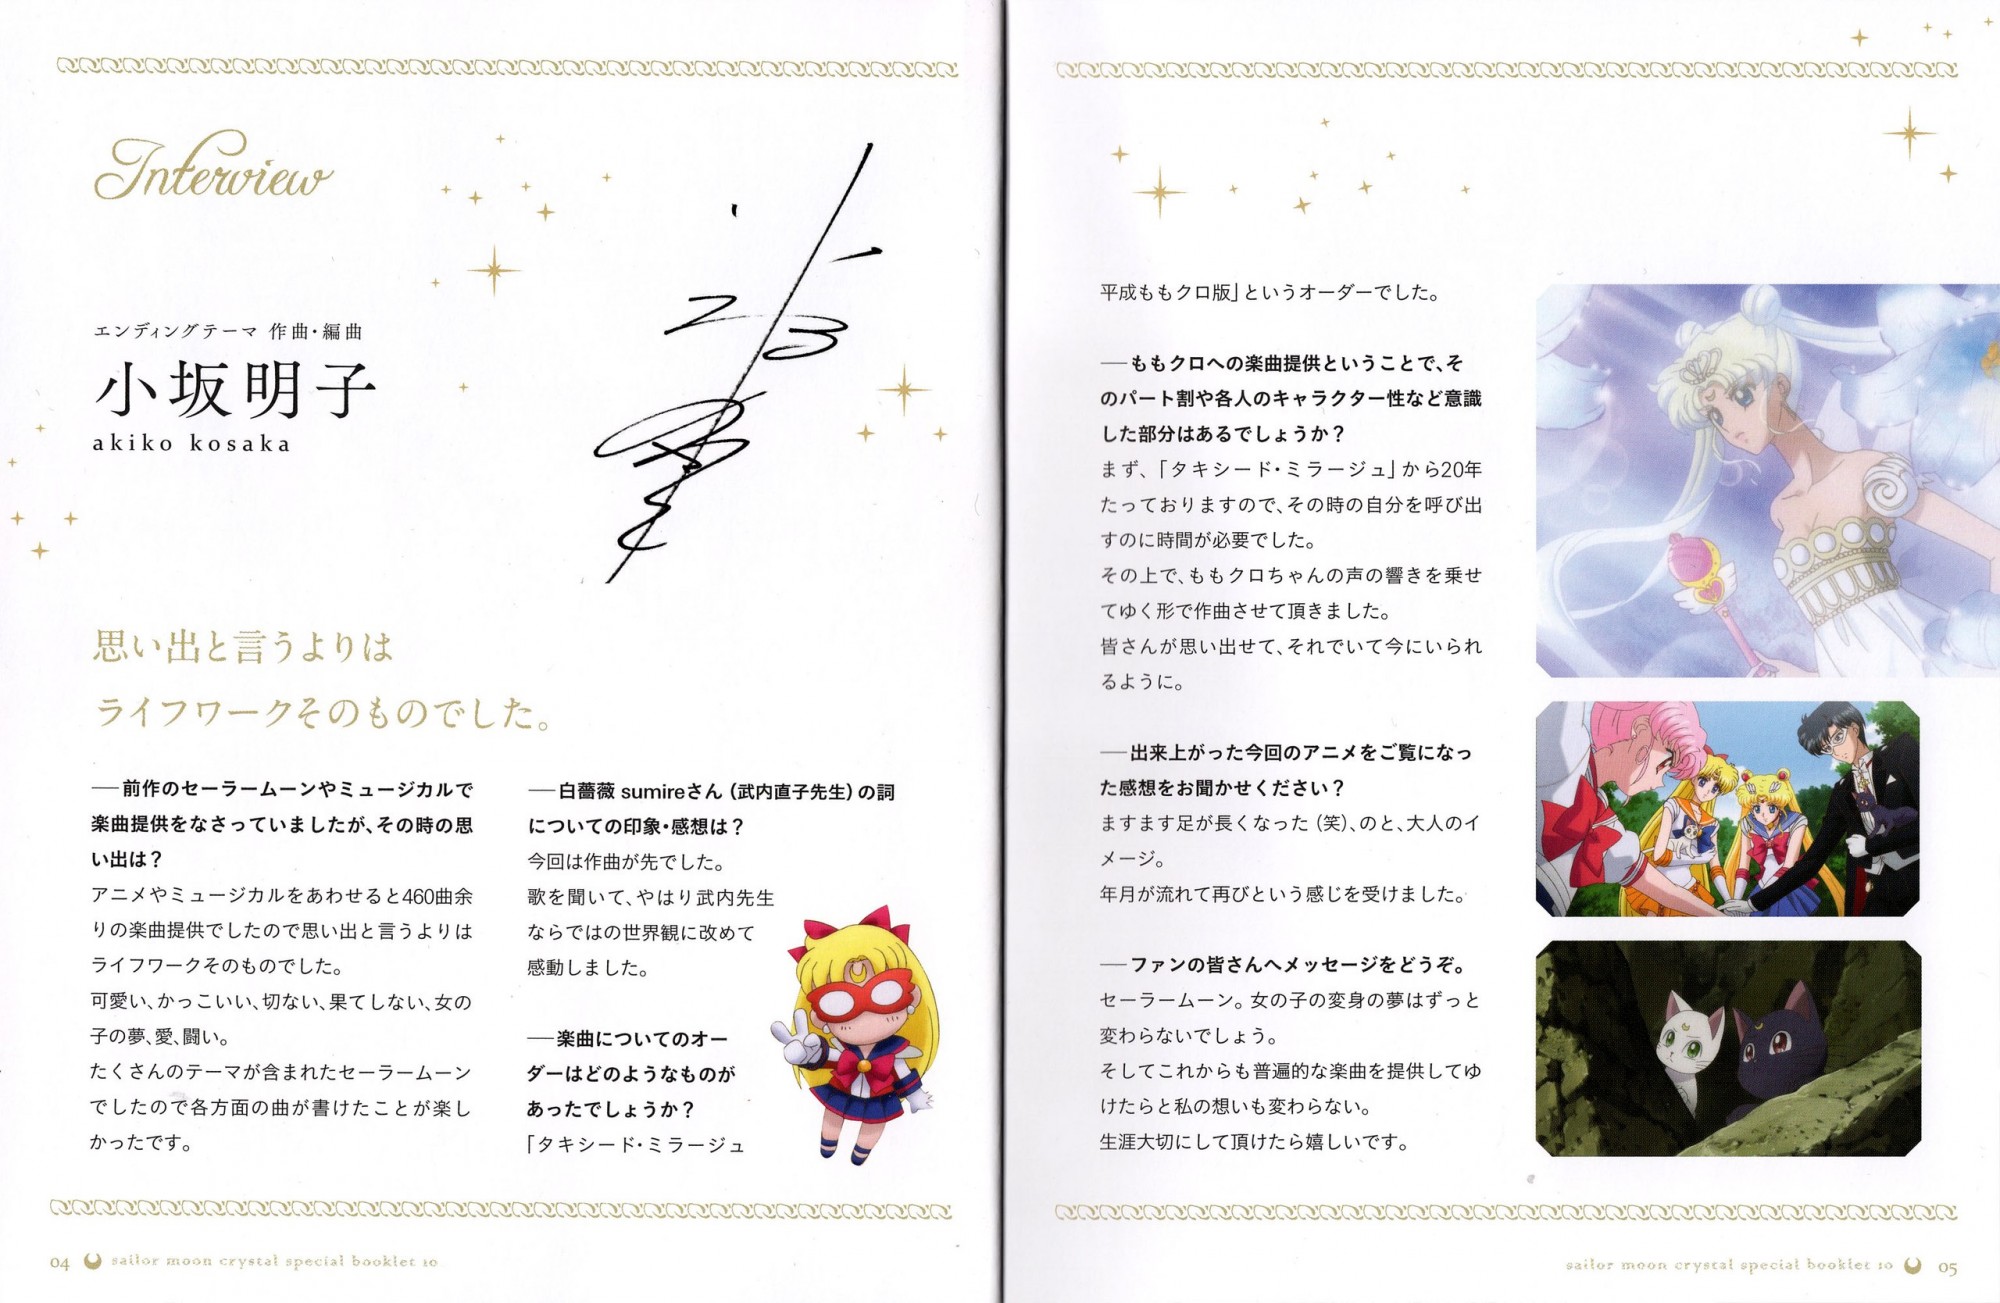 Interview
エンディングテーマ 作曲・編曲
小坂明子
akiko kosaka
思い出と言うよりは
ライフワークそのものでした。
──前作のセーラームーンやミュージカルで
楽曲提供をなさっていましたが、その時の思
い出は？
アニメやミュージカルをあわせると460曲余
りの楽曲提供でしたので思い出と言うよりは
ライフワークそのものでした。
可愛い、かっこいい、切ない、果てしない、女の
子の夢、愛、闘い。
たくさんのテーマが含まれたセーラームーン
でしたので各方面の曲が書けたことが楽し
かったです。
──白薔薇 sumireさん（武内直子先生）の詞
についての印象・感想は？
今回は作曲が先でした。
歌を聞いて、やはり武内先生
ならではの世界観に改めて
感動しました。
──楽曲についてのオー
ダーはどのようなものが
あったでしょうか？
「タキシード・ミラージュ
04 sailor moon crystal special booklet 10
平成ももクロ版」というオーダーでした。
──ももクロへの楽曲提供ということで、そ
のパート割や各人のキャラクター性など意識
した部分はあるでしょうか？
まず、「タキシード・ミラージュ」から20年
たっておりますので、その時の自分を呼び出
すのに時間が必要でした。
その上で、ももクロちゃんの声の響きを乗せ
てゆく形で作曲させて頂きました。
皆さんが思い出せて、それでいて今にいられ
るように。
──出来上がった今回のアニメをご覧になっ
た感想をお聞かせください？
ますます足が長くなった（笑）、のと、大人のイ
メージ。
年月が流れて再びという感じを受けました。
──ファンの皆さんへメッセージをどうぞ。
セーラームーン。女の子の変身の夢はずっと
変わらないでしょう。
そしてこれからも普遍的な楽曲を提供してゆ
けたらと私の想いも変わらない。
生涯大切にして頂けたら嬉しいです。
sailor moon crystal special booklet 10 05